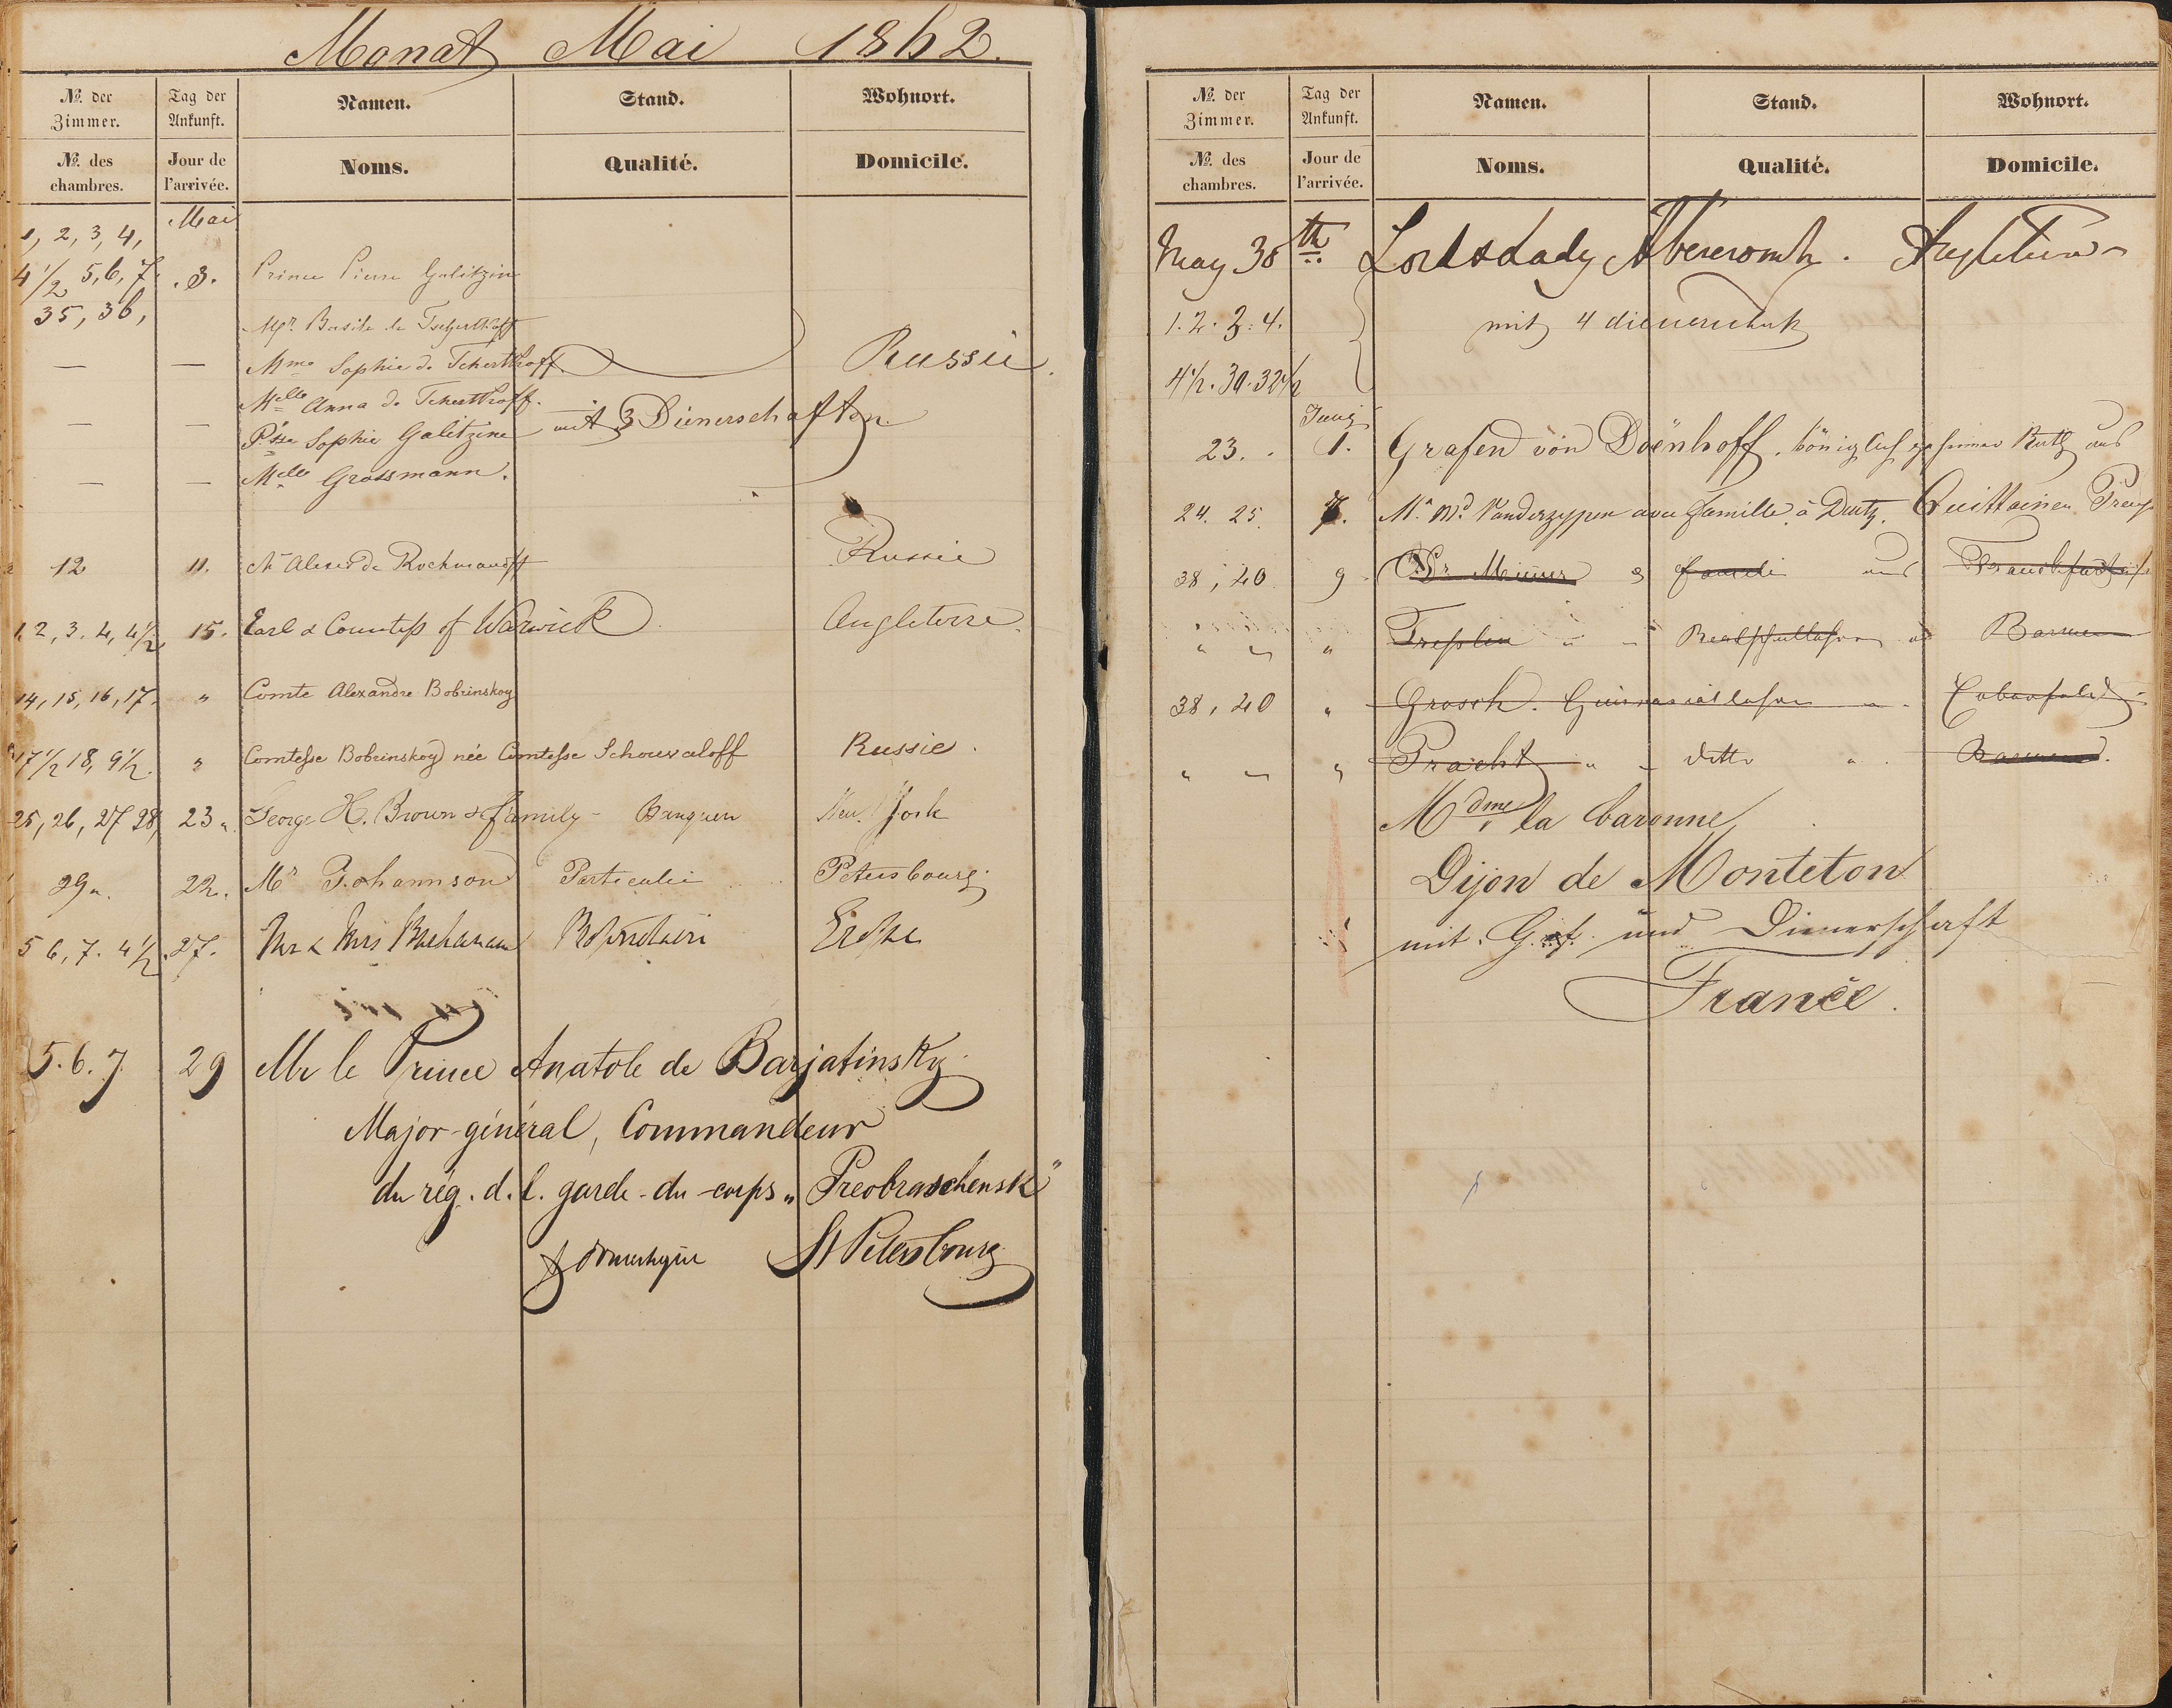 Monat Mai 1862.
No. der Zimmer. Tag der Ankunft. Namen. Stand. Wohnort.
No. des chambres. Jour de l'arrivée. Noms. Qualité. Domicile.
1, 2, 3, 4, Mai
4 1/2 5, 6, 7. 3. Prince Pierre Galitzin
35, 36, Mr. Basile de
— — Mme Sophie de Tchertkoff Russie.
Melle Anna de Tchertkoff.
— — P.sse Sophie Galitzine mit 3 Dienerschaften
— — Melle Grossmann.
12 11. Mr Alexis de Russie
1, 2, 3. 4, 4 1/2 15. Earl & Countess of Warwick Angleterre.
14, 15, 16, 17. " Comte Alexandre Bobrinskoy
17 1/2 18, 9 1/2. " Comtesse Bobrinskoy née Comtesse Schouvaloff Russie.
25, 26, 27 28, 23 " George H. Brown & family - Banquier New York
29 22. Mr Johannson Particulier Petersbourg.
5 6, 7. 4 1/2. 27. Mr & Mrs Buchanan
5. 6. 7. 29 Mr le Prince Anatole de Barjatinsky
Major-général, Commandeur
du rég. d. l. garde-du-corps „Preobraschensk"
& domestique St Petersbourg
No. der Zimmer. Tag der Ankunft. Namen. Stand. Wohnort.
No. des chambres. Jour de l'arrivée. Noms. Qualité. Domicile.
May 30th Lord & Lady Abercromby. Angleterre
1. 2. 3. 4. mit 4 dienerschaft
4 1/2. 30. 32 1/2
Juni
23. 1. Grafen von Doenhoff, königlich geheimer Rath aus
24. 25. 7. Mr. Md. Vanderzypen avec famille à Deutz. Quittainen Preuß
38, 40 9. Dr. & famili aus Frankfurt
" " " Barmen
38, 40 " Grosch. Gimnasiallehrer " Elberfeld
" " " Pracht " " ditto " Barmen.
Mdme la baronne
Dijon de Monteton
mit. und Dienerschaft
France.